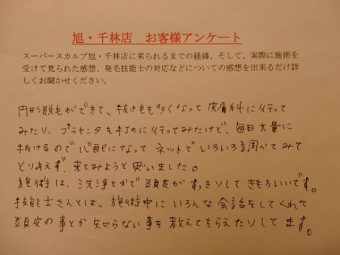 旭・千林店　お客様アンケート
スーパースカルプ旭・千林店に来られるまでの経緯、そして、実際に施術を
受けて見られた感想、発毛技能士の対応などについての感想を出来るだけ詳
しくお聞かせください。
円形脱毛ができて、抜け毛も多くなって皮膚科に行って
みたり、プラセンタを打ちに行ってみたけど、毎日大量に
抜けるので心配になってネットでいろいろ調べてみて
とりあえず、来てみようと思いました。
施術は、洗浄とかで頭皮がすっきりしてきもちいいです。
技能士さんとは、施術中にいろんな会話をしてくれて
頭皮の事とか知らない事を教えてもらえたりしてます。